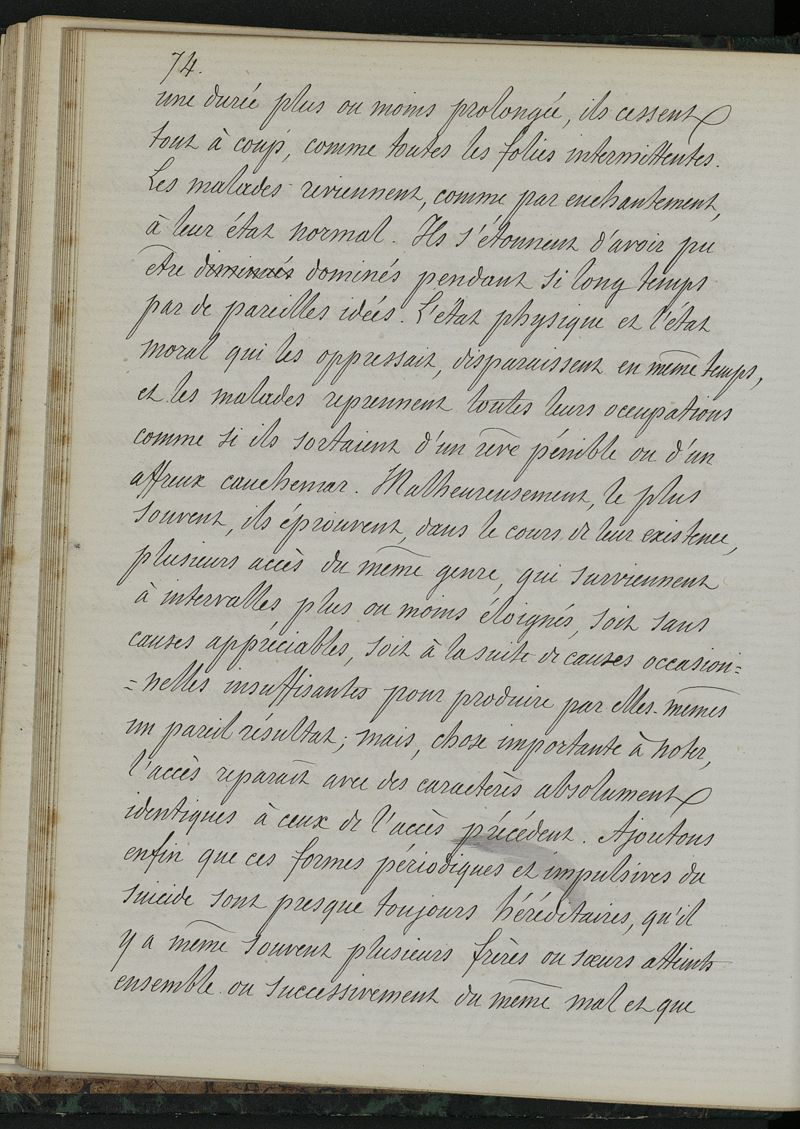 74.
une durée plus ou moins prolongée, ils cessent
tout à coup, comme toutes les folies intermittentes.
Les malades reviennent, comme par enchantement,
à leur état normal. Ils s'étonnent d'avoir pu
être diminués dominés pendant si long temps
par de pareilles idées. L'état physique et l'état
moral qui les oppressait, disparaissent en même temps,
et les malades reprennent toutes leurs occupations
comme si ils sortaient d'un rêve pénible ou d'un
affreux cauchemar. Malheureusement, le plus
souvent, ils éprouvent, dans le cours de leur existence,
plusieurs accès du même genre, qui surviennent
à intervalles plus ou moins éloignés, soit sans
causes appréciables, soit à la suite de causes occasion=
=nelles insuffisantes pour produire par elles-mêmes
un pareil résultat; mais, chose importante à noter,
l'accès reparaît avec des caractères absolument
identiques à ceux de l'accès précédent. Ajoutons
enfin que ces formes périodiques et impulsives du
suicide sont presque toujours héréditaires, qu'il
y a même souvent plusieurs frères ou sœurs atteints
ensemble ou successivement du même mal et que